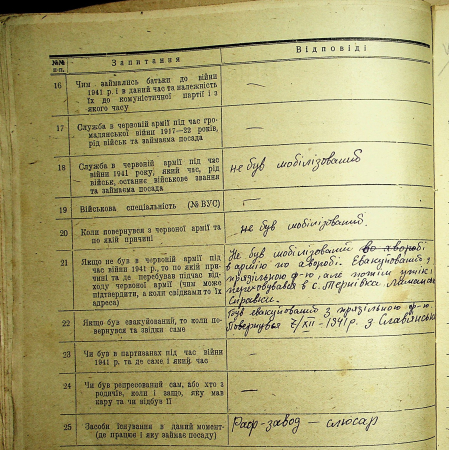 №№ п-п.
Запитання
Відповіді
16
Чим займались батьки до війни
1941 р. і в даний час та належність
їх до комуністичної партії і з
якого часу
—
17
Служба в червоній армії під час гро-
мадянської війни 1917—22 років,
рід військ та займаєма посада
—
18
Служба в червоній армії під час
війни 1941 року, який час, рід
військ, останнє військове звання
та займаєма посада
не був мобілізований
19
Військова спеціальність (№ ВУС)
—
20
Коли повернувся з червоної армії та
по якій причині
не був мобілізований.
21
Якщо не був в червоній армії під
час війни 1941 р., то по якій при-
чині та де перебував підчас від-
ходу червоної армії (чим може
підтвердити, а коли свідками то їх
адреса)
Не був мобілізований во хвороб.
в армію по хворобі. Евакуйований з
прязільною ф-ю, але потім утік і
переховувався в с. Тернівка
справки.
22
Якщо був евакуйований, то коли по-
вернувся та звідки саме
Був евакуйований з прязільною ф-ю.
Повернувся 7/XII-1941 р. з Славянська
23
Чи був в партизанах під час війни
1941 р. та де саме і який час
—
24
Чи був репресований сам, або хто з
родичів, коли і защо, яку мав
кару та чи відбув її
—
25
Засоби існування в даний момент
(де працює і яку займає посаду)
завод — слюсар